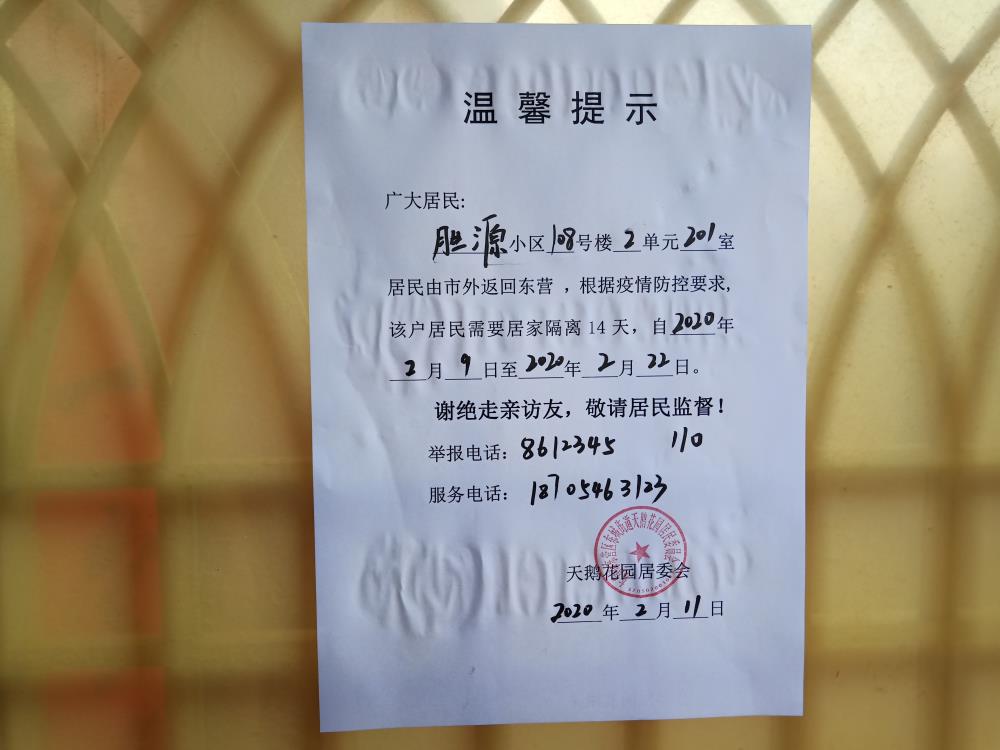 温馨提示
广大居民:
胜源小区108号楼2单元201室
居民由市外返回东营，根据疫情防控要求,
该户居民需要居家隔离14天，自2020年
2月9日至2020年2月22日。
谢绝走亲访友，敬请居民监督！
举报电话：8612345 110
服务电话：18705463123
天鹅花园居委会
2020年2月11日